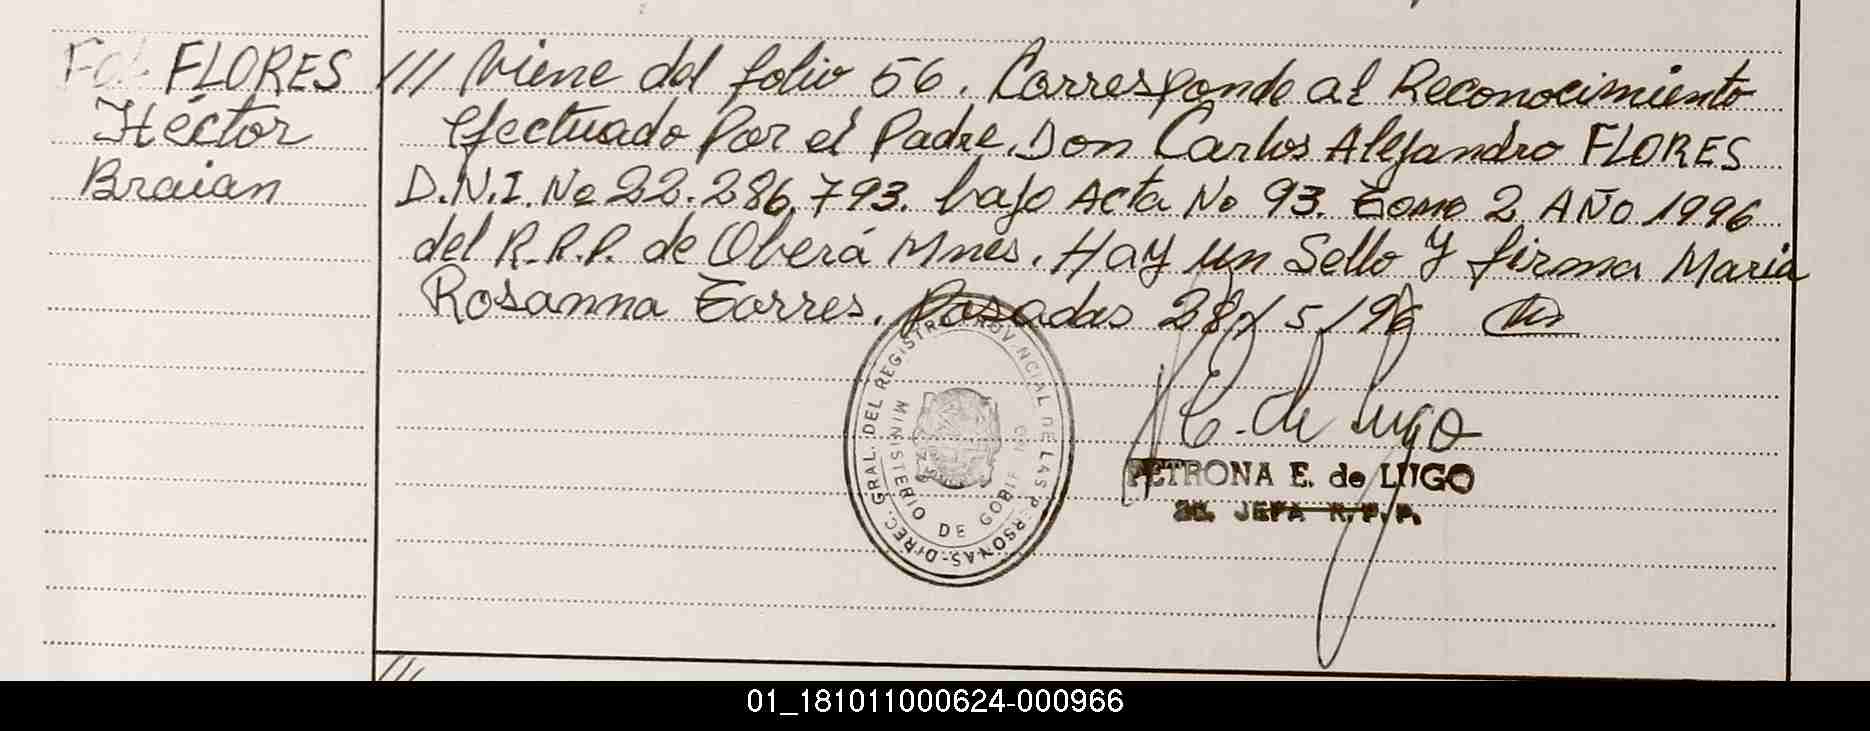 FLORES
Héctor
Braian
/// Viene del folio 56. Corresponde al Reconocimiento
efectuado Por el Padre. Don Carlos Alejandro FLORES
D.N.I. No 22.286.793. bajo Acta No 93. Tomo 2 AÑO 1996
del R.P.P. de Oberá Mnes. Hay un Sello y firma Maria
Rosanna Torres. Posadas 28/5/96
DIREC. GRAL. DEL REGISTRO PROVINCIAL DE LAS PERSONAS-
MINISTERIO DE GOBIERNO
E. de Lugo
PETRONA E. de LUGO
JEFA R.P.P.
///
01_181011000624-000966